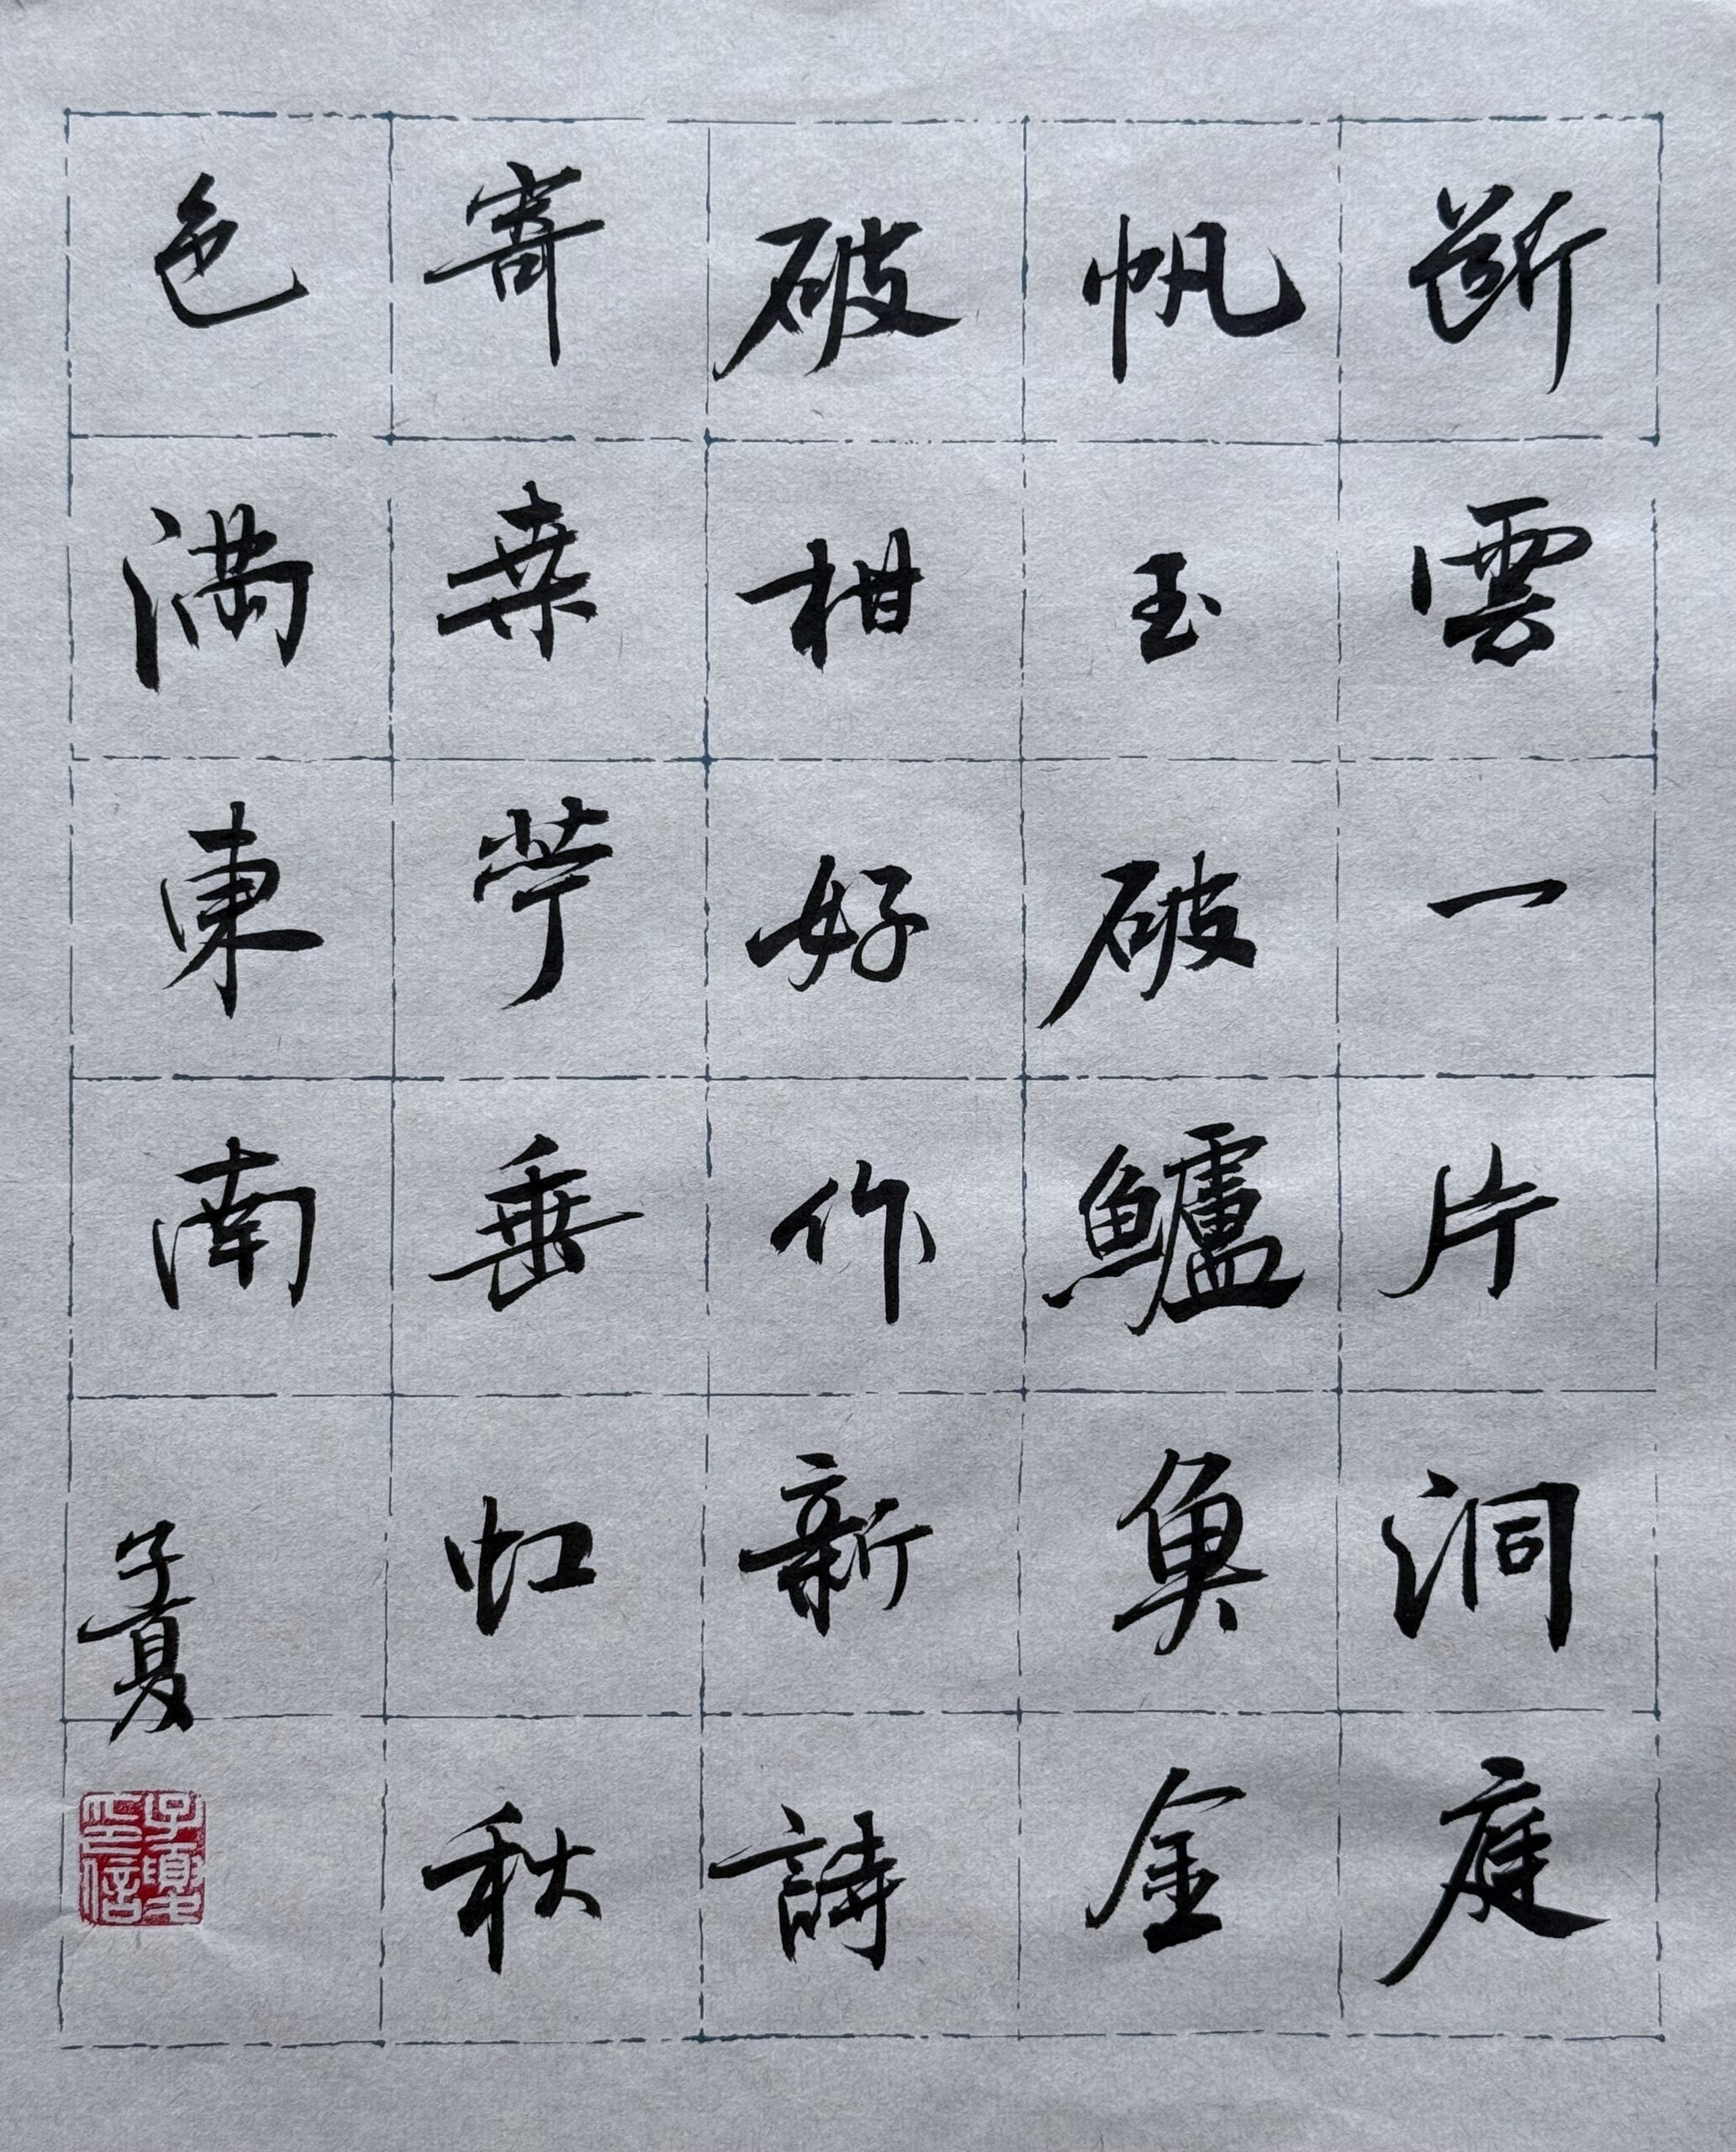 斷雲一片洞庭
帆玉破鱸魚金
破柑好作新詩
寄桒苧垂虹秋
色満東南
子夏
子夏印信